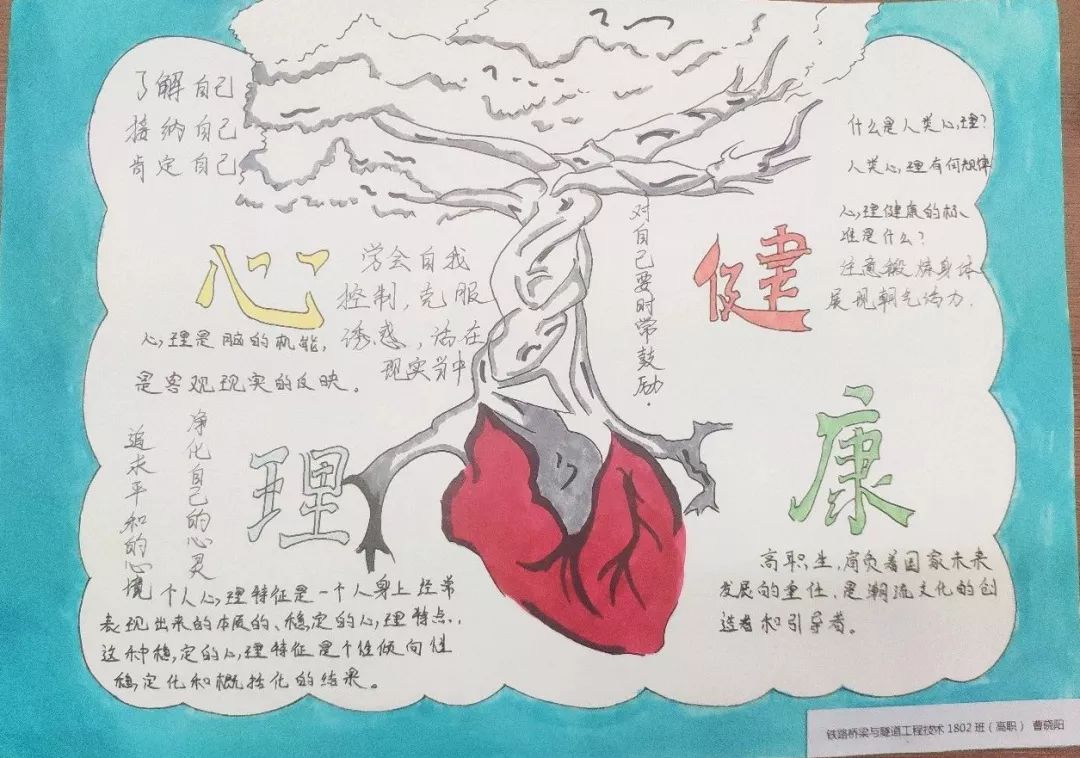 了解自己
接纳自己
肯定自己
心
学会自我
控制，克服
诱惑，活在
现实当中
心理是脑的机能，
是客观现实的反映。
净化自己的心灵
追求平和的心境
理
个人心理特征是一个人身上经常
表现出来的本质的、稳定的心理特点，
这种稳定的心理特征是个性倾向性
稳定化和概括化的结果。
对自己要时常鼓励.
什么是人类心理？
人类心理有何规律
心理健康的标
准是什么？
注意锻炼身体
展现朝气活力.
健
康
高职生，肩负着国家未来
发展的重任，是潮流文化的创
造者和引导者。
铁路桥梁与隧道工程技术1802班（高职） 曹晓阳